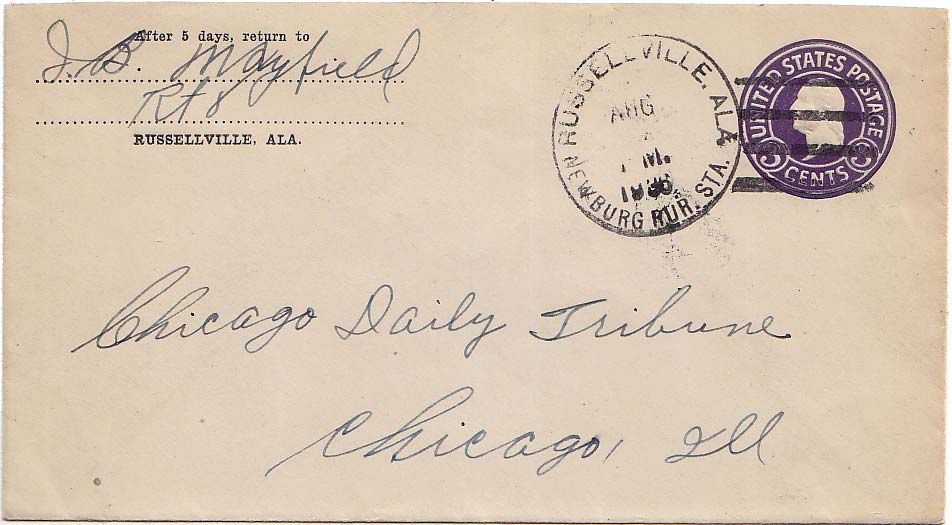 After 5 days, return to
J. B. Mayfield
Rt 8
RUSSELLVILLE, ALA.
RUSSELLVILLE, ALA.
AUG
NEWBURG RUR. STA.
UNITED STATES POSTAGE
3 CENTS 3
Chicago Daily Tribune
Chicago, Ill